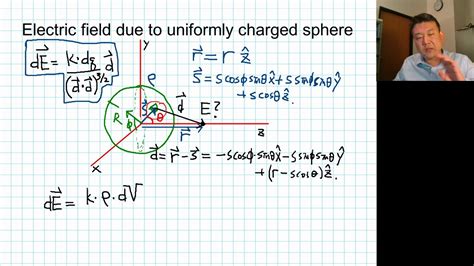 Electric field due to uniformly charged sphere
dE⃗ = k·dq d⃗ / (d⃗·d⃗)^3/2
y
ρ
r⃗ = r ẑ
s⃗ = s cosφ sinθ x̂ + s sinφ sinθ ŷ
+ s cosθ ẑ.
R
φ
s⃗
θ
d⃗
E?
r⃗
z
x
d⃗ = r⃗ - s⃗ = -s cosφ sinθ x̂ - s sinφ sinθ ŷ
+ (r - s cosθ) ẑ.
dE⃗ = k·ρ·dV